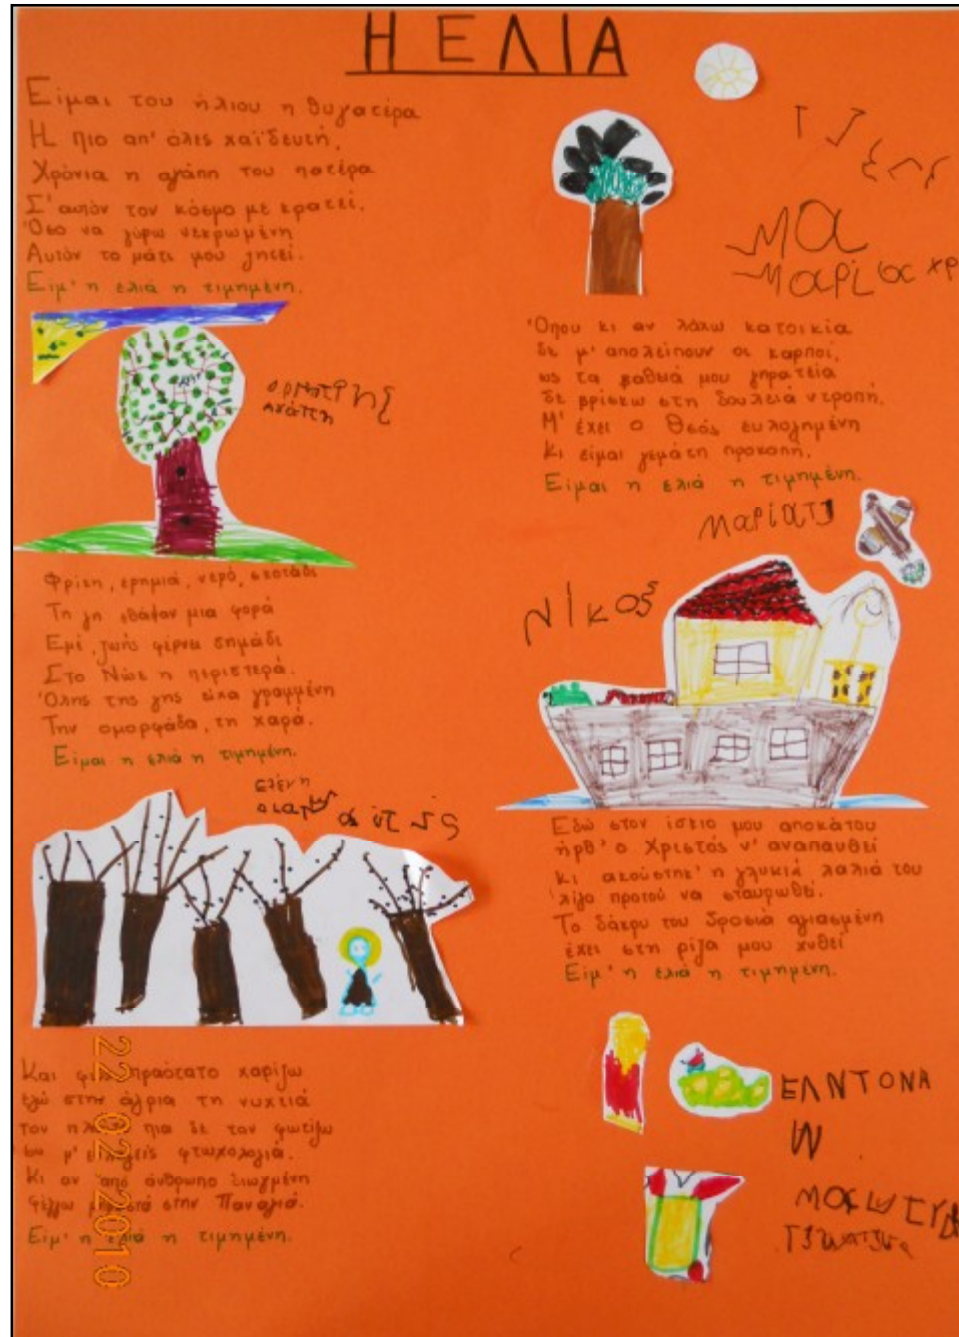 Η ΕΛΙΑ
Είμαι του ήλιου η θυγατέρα
Η πιο απ' όλες χαϊδευτή,
Χρόνια η αγάπη του πατέρα
Σ' αυτόν τον κόσμο με κρατεί.
Όσο να γύρω νεκρωμένη
Αυτόν το μάτι μου ζητεί.
Είμ' η ελιά η τιμημένη.
Φρίκη, ερημιά, νερό, σκοτάδι
Τη γη εθάψαν μια φορά
Εμέ, ζωής φέρνει σημάδι
Στο Νώε η περιστερά.
Όλης της γης είχα γραμμένη
Την ομορφάδα, τη χαρά.
Είμαι η ελιά η τιμημένη.
ελένη
Και φως πραότατο χαρίζω
εγώ στην άγρια τη νυχτιά
τον πλούτο πια δε τον φωτίζω
συ μ' ευλογείς φτωχολογιά.
Κι αν από άνθρωπο διωγμένη
φέγγω μπροστά στην Παναγιά.
Είμ' η ελιά η τιμημένη.
22 02 2010
ΜΑ
ΜΑΡΙ
Όπου κι αν λάχω κατοικία
δε μ' απολείπουν οι καρποί,
ως τα βαθιά μου γηρατεία
δε βρίσκω στη δουλειά ντροπή.
Μ' έχει ο Θεός ευλογημένη
Κι είμαι γεμάτη προκοπή.
Είμαι η ελιά η τιμημένη.
ΝΙΚΟΣ
Εδώ στον ίσκιο μου αποκάτου
ήρθ' ο Χριστός ν' αναπαυθεί
κι ακούστηκ' η γλυκιά λαλιά του
λίγο προτού να σταυρωθεί.
Το δάκρυ του δροσιά αγιασμένη
έχει στη ρίζα μου χυθεί
Είμ' η ελιά η τιμημένη.
ΕΛΝΤΟΝΑ